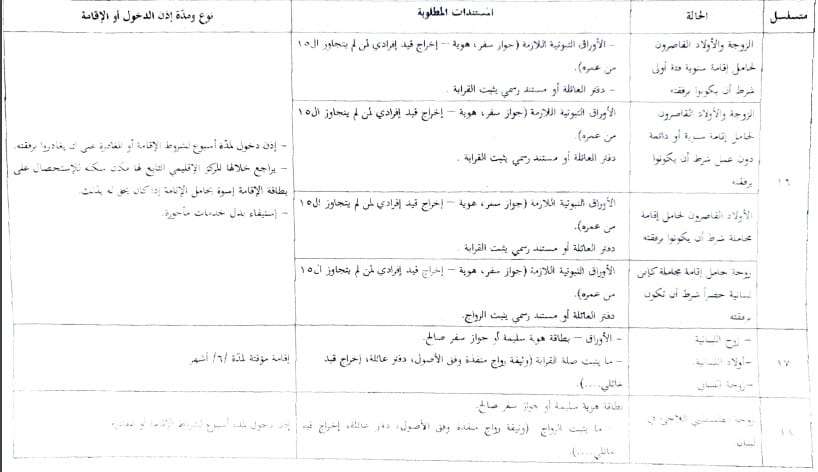 متسلسل
الحالة
المستندات المطلوبة
نوع ومدّة إذن الدخول أو الإقامة
١٦
الزوجة والأولاد القاصرون
لحامل إقامة سنوية فئة أولى
شرط أن يكونوا برفقته
– الأوراق الثبوتية اللازمة (جواز سفر، هوية – إخراج قيد إفرادي لمن لم يتجاوز ال١٥
من عمره).
– دفتر العائلة أو مستند رسمي يثبت القرابة.
الزوجة والأولاد القاصرون
لحامل إقامة سنوية أو دائمة
دون عمل شرط أن يكونوا
برفقته
الأوراق الثبوتية اللازمة (جواز سفر، هوية – إخراج قيد إفرادي لمن لم يتجاوز ال١٥
من عمره).
دفتر العائلة أو مستند رسمي يثبت القرابة.
الأولاد القاصرون لحامل إقامة
مجاملة شرط أن يكونوا برفقته
الأوراق الثبوتية اللازمة (جواز سفر، هوية – إخراج قيد إفرادي لمن لم يتجاوز ال١٥
من عمره).
دفتر العائلة أو مستند رسمي يثبت القرابة.
زوجة حامل إقامة مجاملة كابن
لبنانية حصراً شرط أن تكون
برفقته
الأوراق الثبوتية اللازمة (جواز سفر، هوية – إخراج قيد إفرادي لمن لم يتجاوز ال١٥
من عمره).
دفتر العائلة أو مستند رسمي يثبت الزواج.
– إذن دخول لمدّة أسبوع لشروط الإقامة أو المغادرة على أن يغادروا برفقته.
– يراجع خلالها المركز الإقليمي التابع لها مكان سكنه للإستحصال على
بطاقة الإقامة إسوة بحامل الإقامة إذا كان يحق له بذلك.
– إستيفاء بدل خدمات مأجورة.
١٧
– زوج اللبنانية
–أولاد اللبنانية
–زوجة اللبناني
– الأوراق – بطاقة هوية سليمة أو جواز سفر صالح.
– ما يثبت صلة القرابة (وثيقة زواج منفذة وفق الأصول، دفتر عائلة، إخراج قيد
عائلي....).
إقامة مؤقتة لمدّة /٦/ أشهر
١٨
زوجة الفلسطيني اللاجئ في
لبنان
بطاقة هوية سليمة أو جواز سفر صالح.
– ما يثبت الزواج (وثيقة زواج منفذة وفق الأصول، دفتر عائلة، إخراج قيد
عائلي....).
إذن دخول لمدة أسبوع لشروط الإقامة أو المغادرة